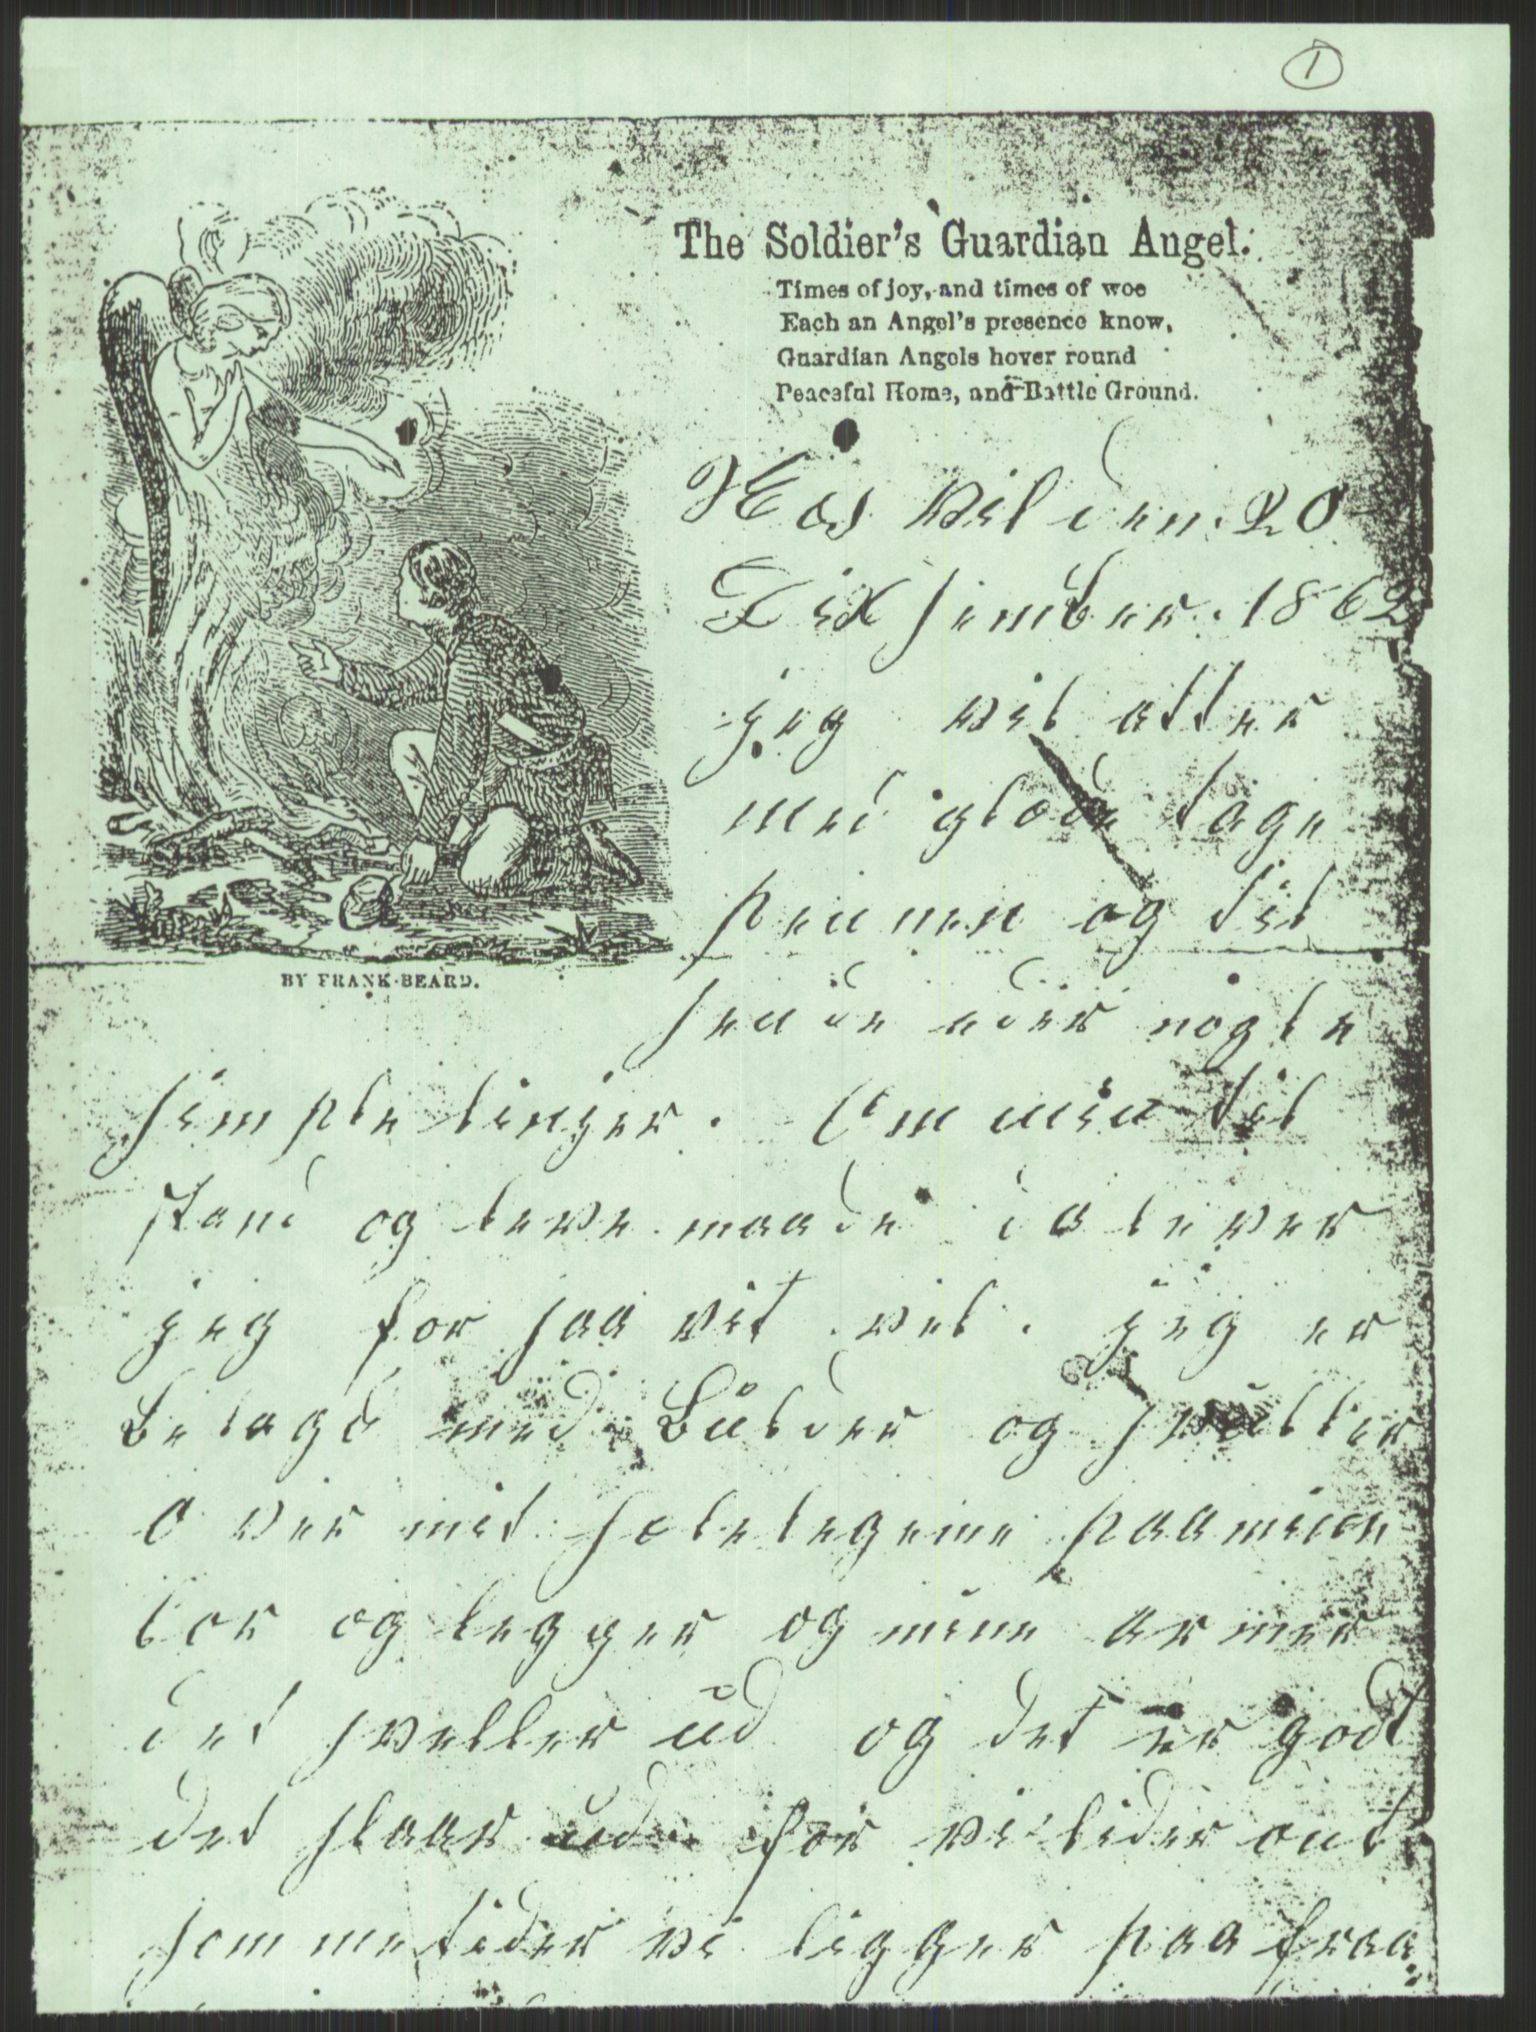 1
The Soldier's Guardian Angel.
Times of joy, and times of woe
Each an Angel's presence know,
Guardian Angels hover round
Peaceful Home, and Battle Ground.
BY FRANK BEARD.
den 20
Dixsember. 1862
jeg vil atter
med glæde tage
pennen og til
sende eder nogle
simple linjer. Om min til
stand og leve maade da lever
jeg for saa vit vel. jeg er
belagd med Bülder og svuller
over mit hele legeme paa mine
lor og legger og mine armer
det sveller ud og det er godt
det slaar ud for vi lider ont
somme tider vi ligger paa fraa